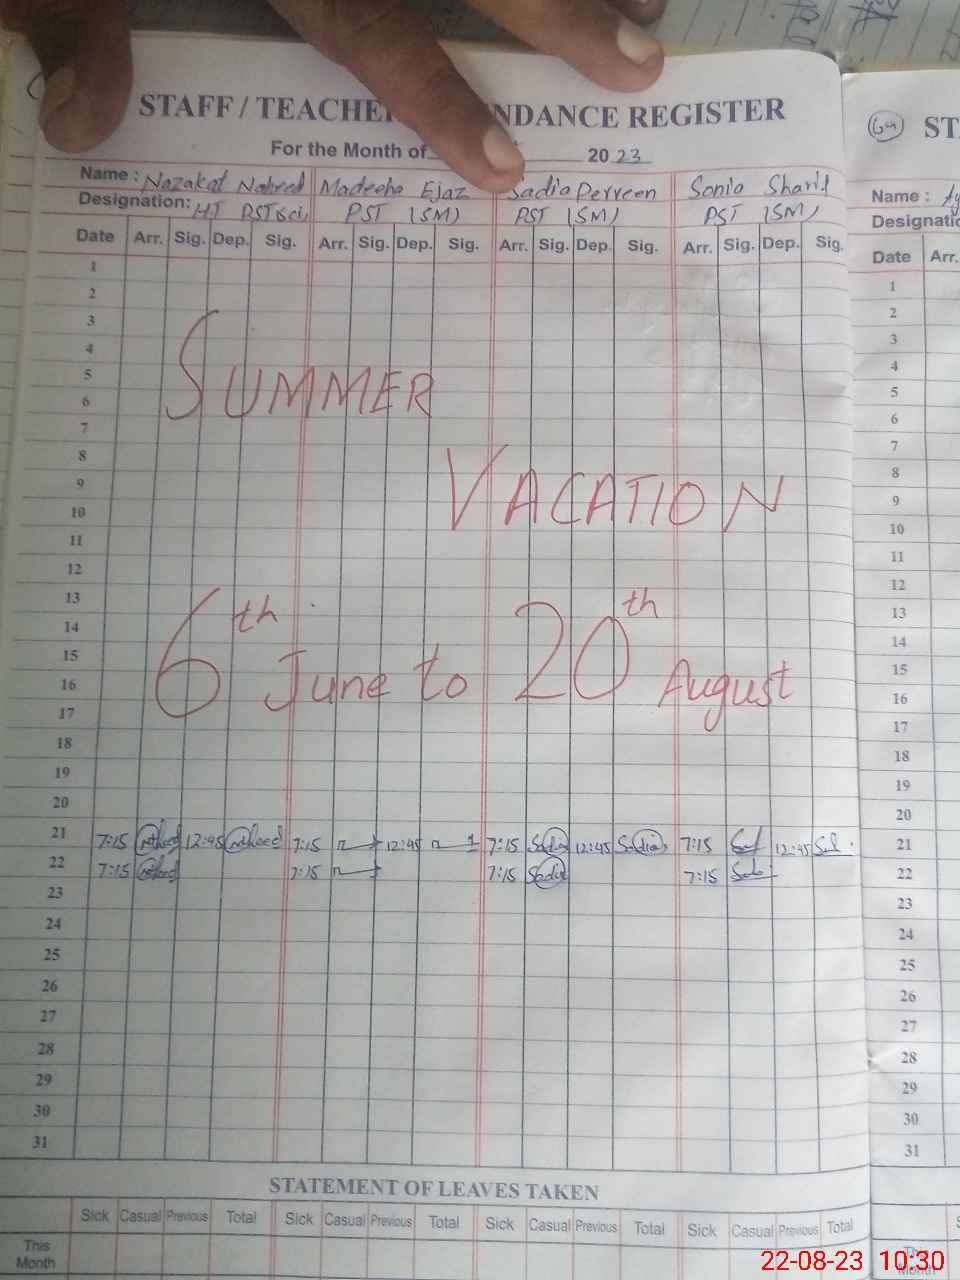 STAFF / TEACHE NDANCE REGISTER
For the Month of 2023
Name : Nazakat Naheed Madeeha Ejaz Sadia Perveen Sonia Sharif
Designation: HT PST(Sci) PST (SM) PST (SM) PST (SM)
Date Arr. Sig. Dep. Sig. Arr. Sig. Dep. Sig. Arr. Sig. Dep. Sig. Arr. Sig. Dep. Sig.
1
2
3
4
5
6
7
8
9
10
11
12
13
14
15
16
17
18
19
20
SUMMER
VACATION
6th June to 20th August
21 7:15 12:45 7:15 12:45 7:15 Sadia 12:45 Sadia 7:15 12:45
22 7:15 7:15 7:15 Sadia 7:15
23
24
25
26
27
28
29
30
31
STATEMENT OF LEAVES TAKEN
Sick Casual Previous Total Sick Casual Previous Total Sick Casual Previous Total Sick Casual Previous Total
This Month
64 ST
Name :
Designatio
Date Arr.
1
2
3
4
5
6
7
8
9
10
11
12
13
14
15
16
17
18
19
20
21
22
23
24
25
26
27
28
29
30
31
22-08-23 10:30